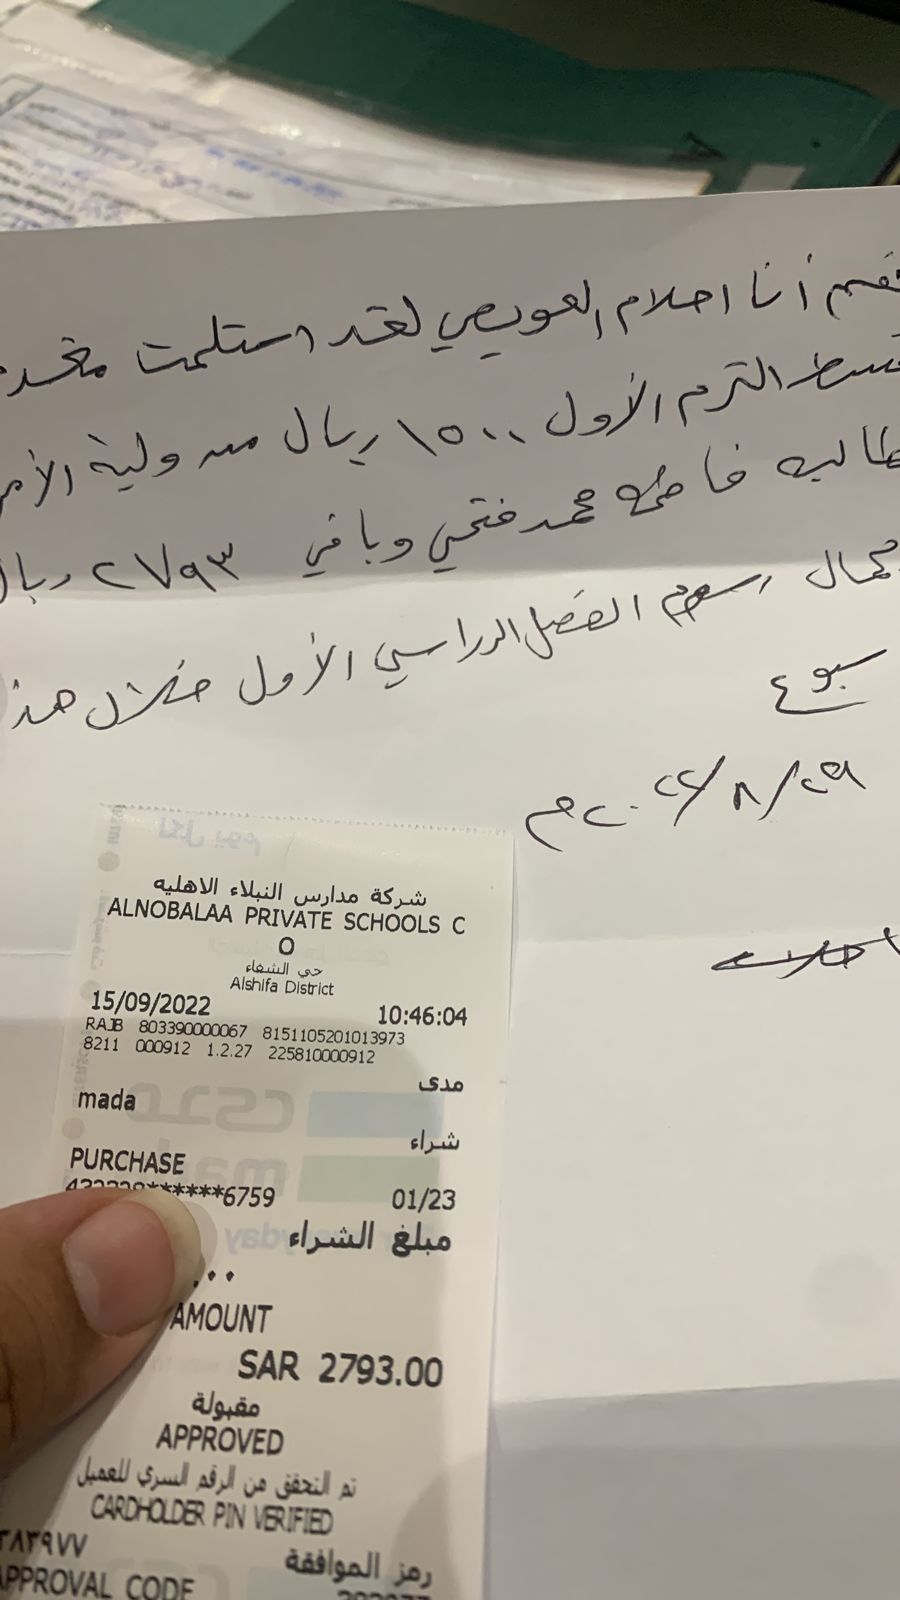 أنا احلام العويصي لقد استلمت
قسط الترم الأول ١٥٠٠ ريال من ولية الأمر
فاطمة محمد فتحي وباقي ٢٧٩٣ ريال
رسوم الفصل الدراسي الأول خلال هذ
سبوع
٢٩/٨/٢٠٢٢م
احلام
شركة مدارس النبلاء الاهليه
ALNOBALAA PRIVATE SCHOOLS C
O
حي الشفاء
Alshifa District
15/09/2022 10:46:04
RAJB 803390000067 8151105201013973
8211 000912 1.2.27 225810000912
مدى
mada
شراء
PURCHASE
******6759 01/23
مبلغ الشراء
AMOUNT
SAR 2793.00
مقبولة
APPROVED
تم التحقق من الرقم السري للعميل
CARDHOLDER PIN VERIFIED
رمز الموافقة
APPROVAL CODE